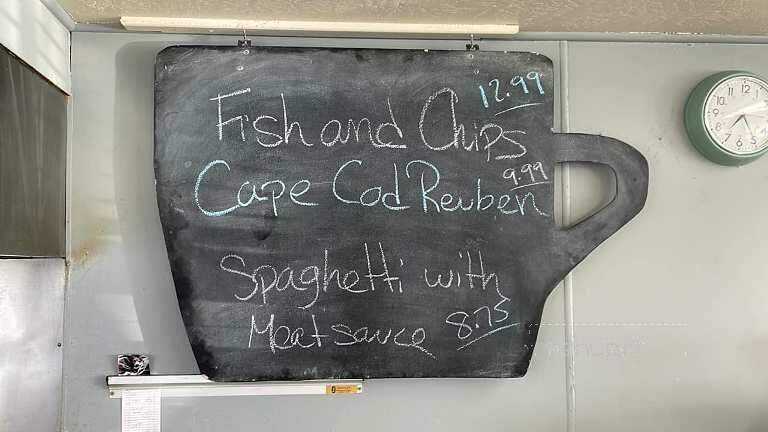 12.99
Fish and Chips
9.99
Cape Cod Reuben
Spaghetti with
Meatsauce 8.75